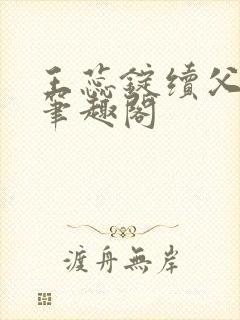 王蕊錠續父
筆趣閣
渡舟無岸